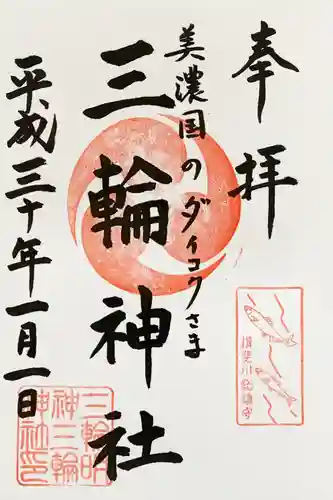 奉拝
美濃国のダイコクさま
三輪神社
平成三十年一月一日
三輪明
神三輪
神社印